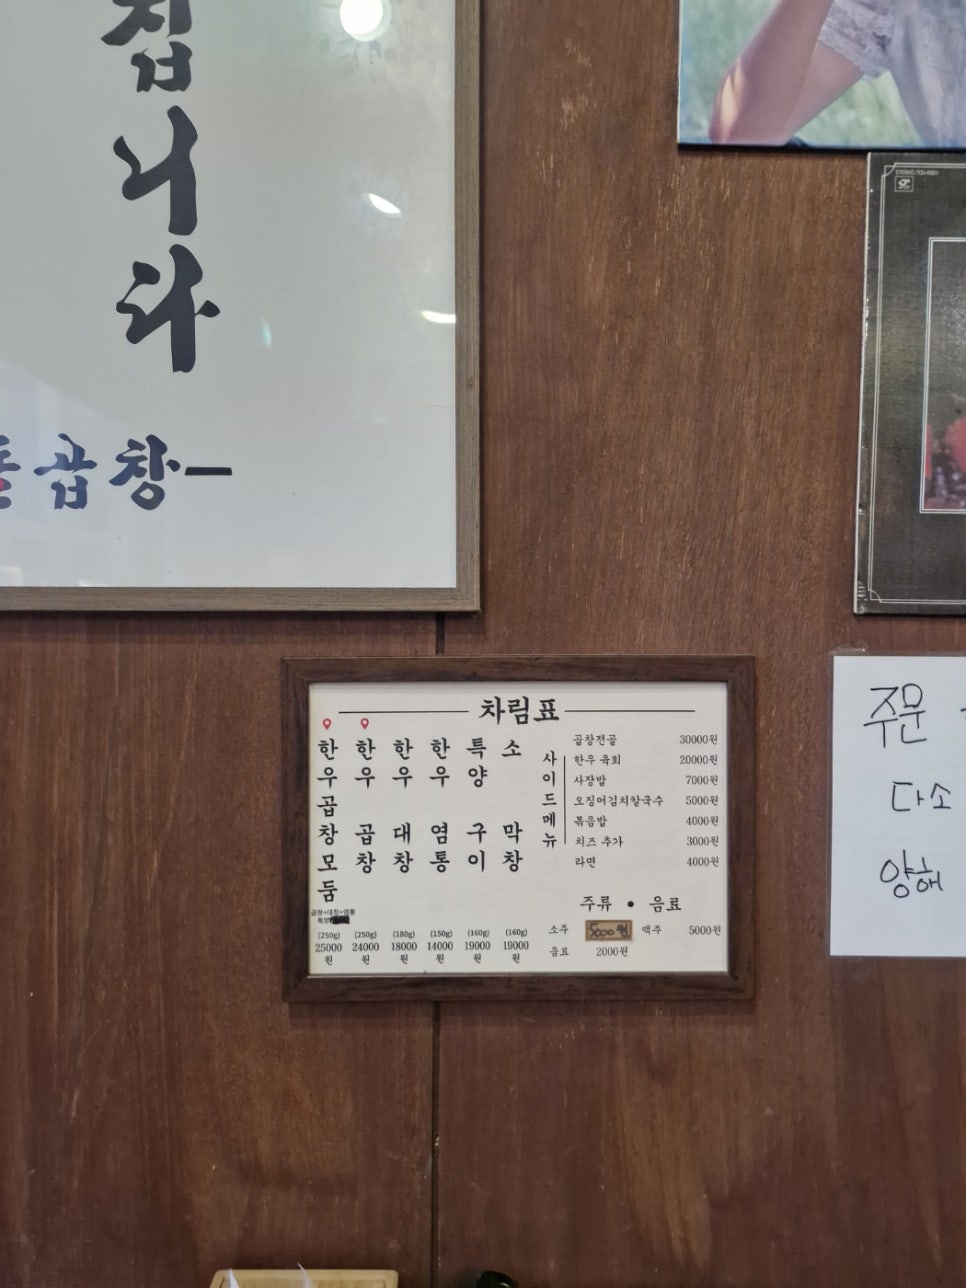 집니다
곱창
STEREO
차림표
한우곱창모둠
곱창+대창+염통
(250g)
25000원
한우곱창
(250g)
24000원
한우대창
(180g)
18000원
한우염통
(150g)
14000원
특양구이
(160g)
19000원
소막창
(160g)
19000원
사이드메뉴
곱창전골 30000원
한우 육회 20000원
사장밥 7000원
오징어김치칼국수 5000원
볶음밥 4000원
치즈 추가 3000원
라면 4000원
주류 • 음료
소주 5000원 맥주 5000원
음료 2000원
주문
다소
양해